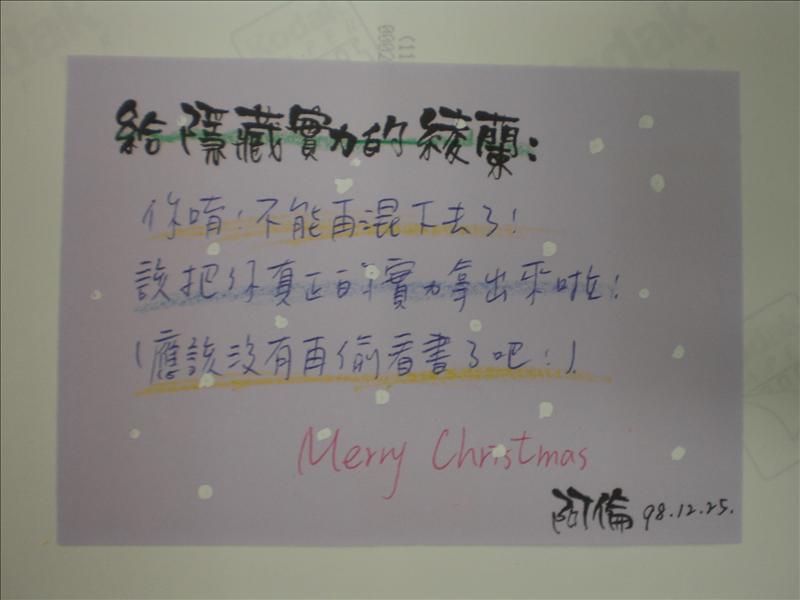 給隱藏實力的綾蘭:
你唷!不能再混下去了!
該把你真正的實力拿出來啦!
(應該沒有再偷看書了吧!)
Merry Christmas
阿倫 98.12.25.